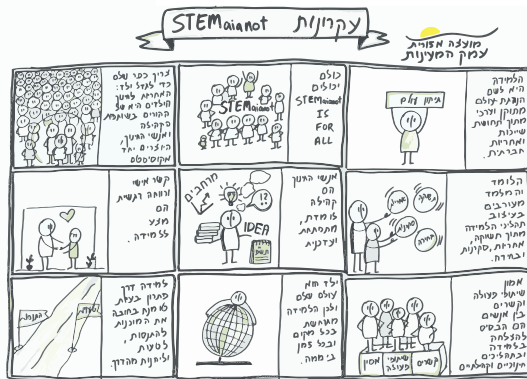 עקרונות STEMaianot
מועצה אזורית
עמק המעיינות
הלמידה
היא לשם
הקניית עולם
מתוקן וערכי
מתוך תחושת
שייכות
ואחריות
חברתית.
תיקון עולם
כולם
יכולים
STEMaianot
IS
FOR
ALL
STEMaianot
צריך כפר שלם
כדי לגדל ילד:
האחריות לחינוך
הילדים היא של
ההורים בשותפות
הקהילה
ואנשי החינוך,
היוצרים יחד
אקוסיסטם
הלומד
והמלמד
מעורבים
בעיצוב
תהליכי הלמידה
מתוך תשוקה,
אחריות, סקרנות
ובחירה.
תשוקה
אחריות
סקרנות
בחירה
אנשי החינוך
הם
קהילה
לומדת,
מתפתחת
ועדכנית
מרחבים
IDEA
קשר אישי
ורווחה רגשית
הם
מצע
ללמידה.
שיתופי פעולה
וקשרים
בין אנשים
הם הבסיס
להצלחה
בלמידה
ובתהליכים
חינוכיים וקהילתיים
קשרים
שיתופי
פעולה
אמון
ילד הוא
עולם שלם
ולכן הלמידה
מתרחשת
בכל מקום
ובכל זמן
ביממה.
למידה דרך
פתרון בעיות
טומנת בחובה
את המוכנות
להתנסות,
לטעות
וליהנות מהדרך.
התנסות